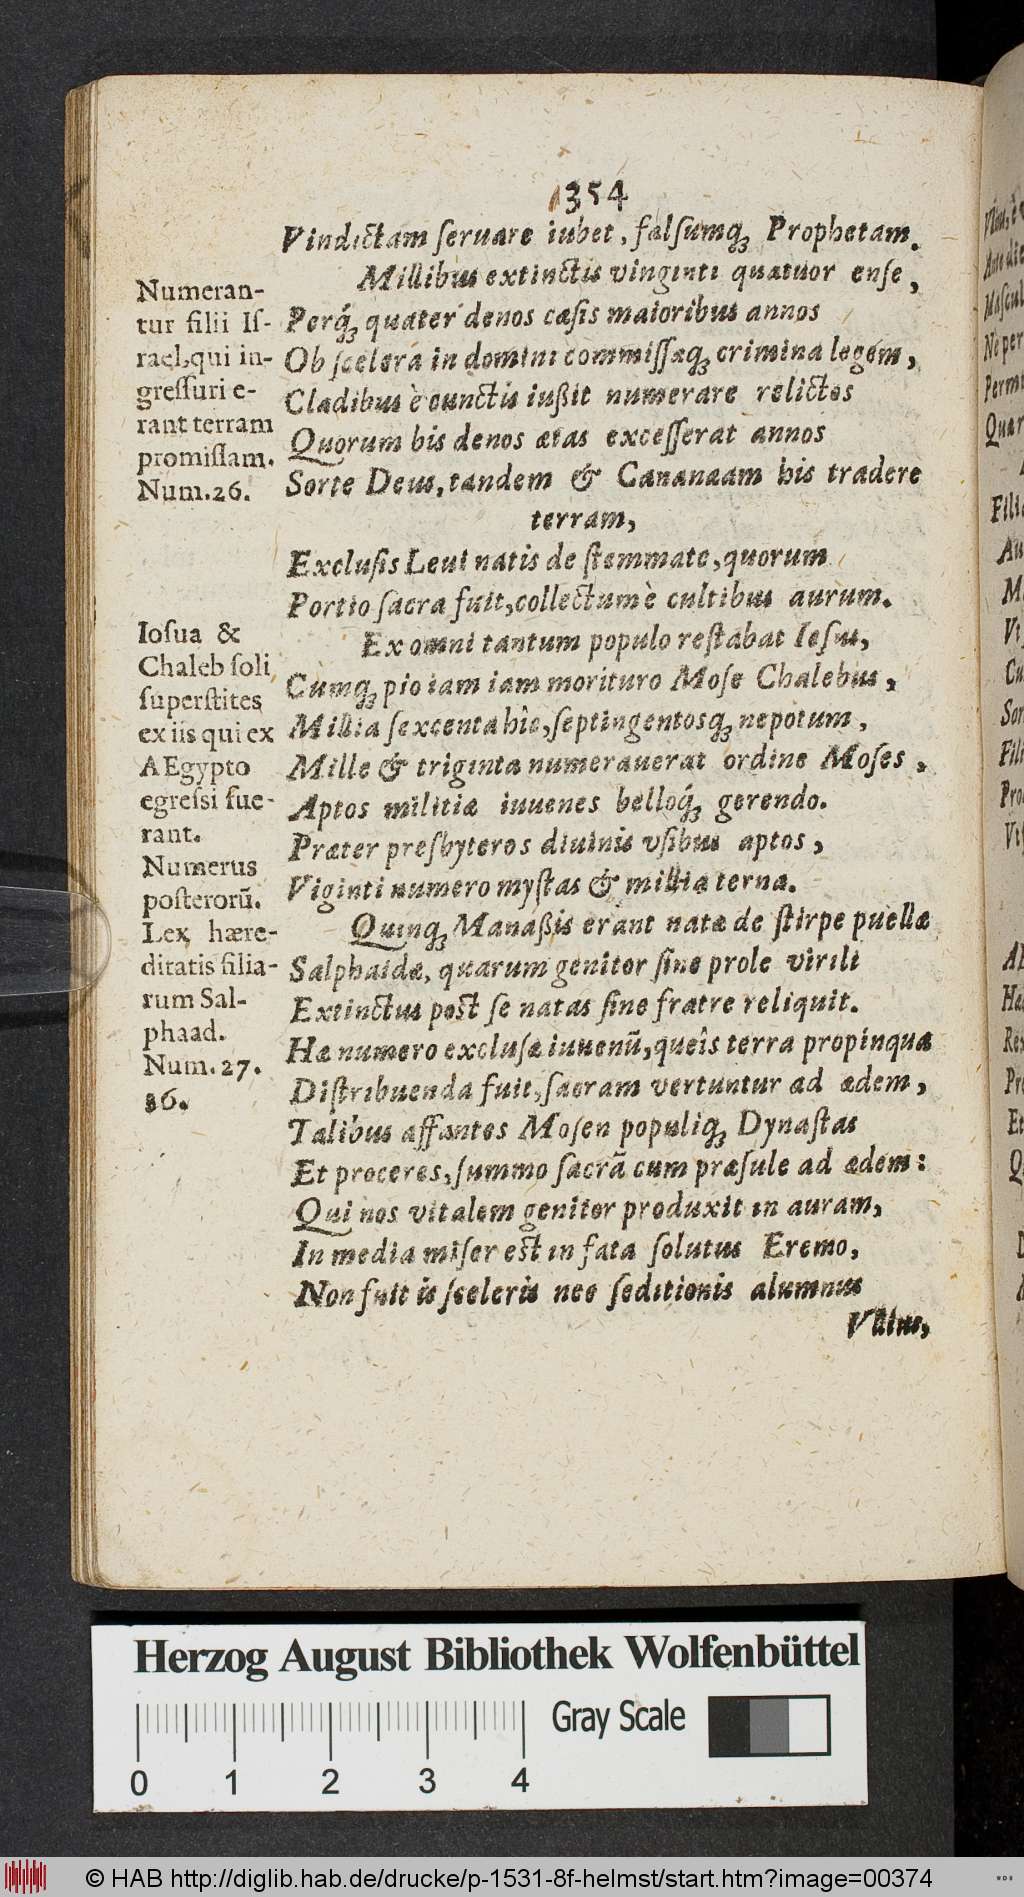 354
Vindictam ſeruare iubet, falſumq́; Prophetam.
Numeran-
tur filii Iſ-
rael, qui in-
greſſuri e-
rant terram
promiſſam.
Num. 26.
Millibus extinctis vinginti quatuor enſe,
Perq́; quater denos cæſis maioribus annos
Ob ſcelera in domini commiſſaq; crimina legem,
Cladibus è cunctis iußit numerare relictos
Quorum bis denos ætas exceſſerat annos
Sorte Deus, tandem & Cananæam his tradere
terram,
Excluſis Leui natis de ſtemmate, quorum
Portio ſacra fuit, collectum è cultibus aurum.
Ioſua &
Chaleb ſoli
ſuperſtites
ex iis qui ex
AEgypto
egreſsi fue-
rant.
Numerus
poſterorū.
Lex hære-
ditatis filia-
rum Sal-
phaad.
Num. 27.
36.
Ex omni tantum populo reſtabat Ieſus,
Cùmq; pio iam iam morituro Moſe Chalebus,
Millia ſexcenta hîc, ſeptingentosq; nepotum,
Mille & triginta numerauerat ordine Moſes,
Aptos militiæ iuuenes belloq́; gerendo.
Præter presbyteros diuinis vſibus aptos,
Viginti numero myſtas & millia terna.
Quinq; Manaßis erant natæ de ſtirpe puellæ
Salphaidæ, quarum genitor ſine prole virili
Extinctus poſt ſe natas ſine fratre reliquit.
Hæ numero excluſæ iuuenū, queîs terra propinqua
Diſtribuenda fuit, ſacram vertuntur ad ædem,
Talibus affantes Moſen populiq; Dynaſtas
Et proceres, ſummo ſacrā cum præſule ad ædem:
Qui nos vitalem genitor produxit in auram,
In media miſer eſt in fata ſolutus Eremo,
Non fuit is ſceleris nec ſeditionis alumnus
Vllius,
Herzog August Bibliothek Wolfenbüttel
Gray Scale
0 1 2 3 4
© HAB http://diglib.hab.de/drucke/p-1531-8f-helmst/start.htm?image=00374